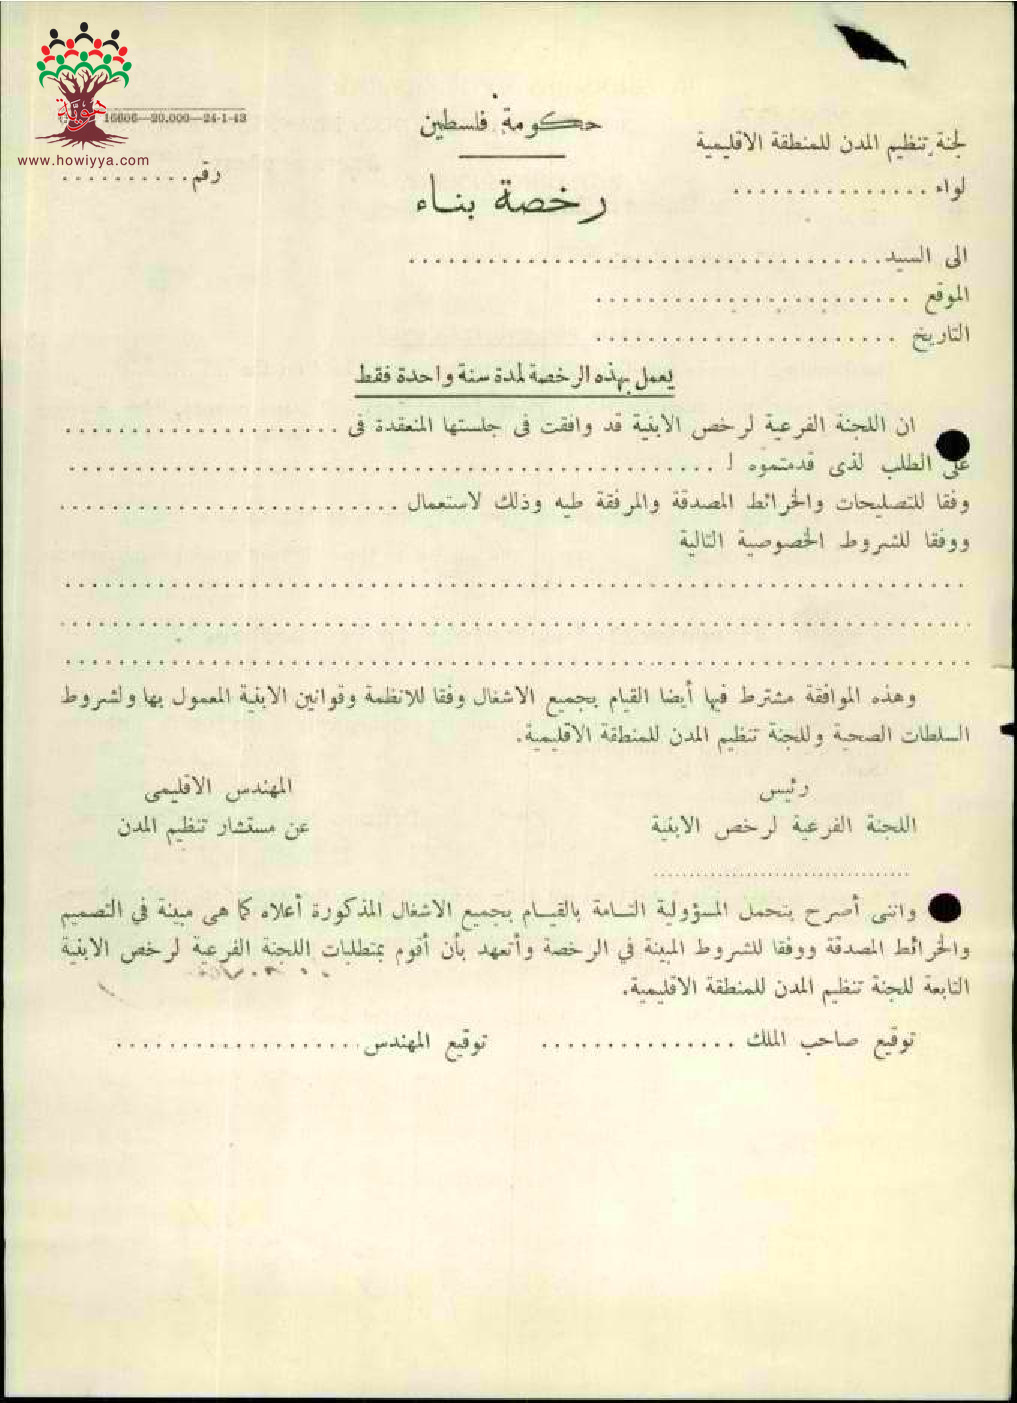 حوية
www.howiyya.com
16606—20.000—24-1-43
حكومة فلسطين
لجنة تنظيم المدن للمنطقة الاقليمية
لواء ...............
رقم ..........
رخصة بناء
الى السيد ....................................
الموقع ........................
التاريخ .......................
يعمل بهذه الرخصة لمدة سنة واحدة فقط
ان اللجنة الفرعية لرخص الابنية قد وافقت فى جلستها المنعقدة فى .....................
على الطلب لذى قدمتموه لـ ..................................................
وفقا للتصليحات والخرائط المصدقة والمرفقة طيه وذلك لاستعمال ...........................
ووفقا للشروط الخصوصية التالية
......................................................................
......................................................................
......................................................................
وهذه الموافقة مشترط فيها أيضا القيام بجميع الاشغال وفقا للانظمة وقوانين الابنية المعمول بها ولشروط
السلطات الصحية وللجنة تنظيم المدن للمنطقة الاقليمية.
رئيس
اللجنة الفرعية لرخص الابنية
........................................
المهندس الاقليمى
عن مستشار تنظيم المدن
واننى أصرح بتحمل المسؤولية التامة بالقيام بجميع الاشغال المذكورة أعلاه كما هى مبينة في التصميم
والخرائط المصدقة ووفقا للشروط المبينة في الرخصة وأتعهد بأن أقوم بمتطلبات اللجنة الفرعية لرخص الابنية
التابعة للجنة تنظيم المدن للمنطقة الاقليمية.
توقيع صاحب الملك ............... توقيع المهندس ...................